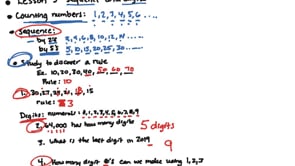 Counting numbers: 1, 2, 3, 4, 5, 6 .....
Sequence:
- by 2's 2, 4, 6, 8, 10, 12, 14 ....
- by 5's 5, 10, 15, 20, 25, 30 ....
Study to discover a rule
Ex. 10, 20, 30, 40, 50, 60, 70
Rule: 10
1. 30, 27, 24, 21, 18, 15
rule: 3
Digits: numerals: 0, 1, 2, 3, 4, 5, 6, 7, 8, 9
2. 64,000 has how many digits 5 digits
3. What is the last digit in 2019 - 9
4. How many digit #'s can we make using 1, 2, 3